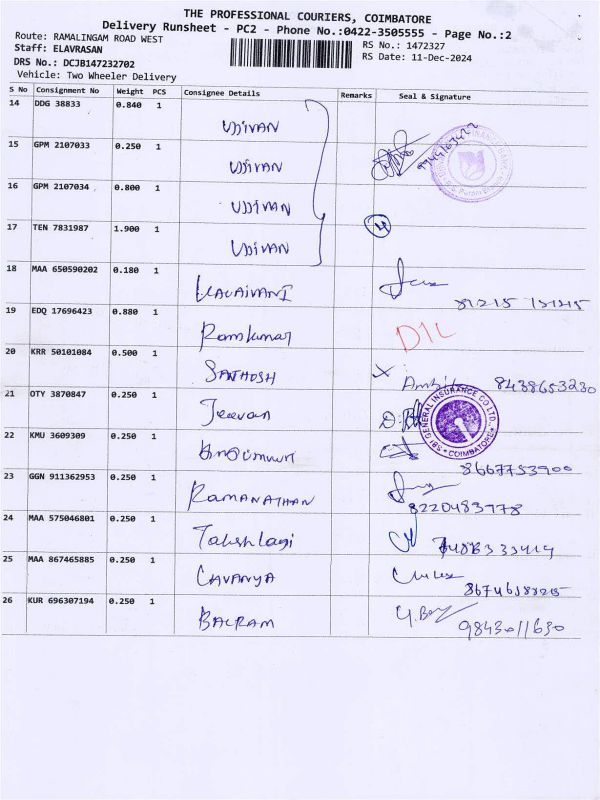 THE PROFESSIONAL COURIERS, COIMBATORE
Delivery Runsheet - PC2 - Phone No.:0422-3505555 - Page No.:2
Route: RAMALINGAM ROAD WEST
RS No.: 1472327
Staff: ELAVRASAN
RS Date: 11-Dec-2024
DRS No.: DCJB147232702
Vehicle: Two Wheeler Delivery
S No Consignment No Weight PCS Consignee Details Remarks Seal & Signature
14 DDG 38833 0.840 1 UJJIVAN
15 GPM 2107033 0.250 1 UJJIVAN
16 GPM 2107034 0.800 1 UJJIVAN
17 TEN 7831987 1.900 1 UJJIVAN 4
18 MAA 650590202 0.180 1 KALAIVANI
19 EDQ 17696423 0.880 1 Ramkumar D1L
20 KRR 50101084 0.500 1 SANTHOSH 8438653230
21 OTY 3870847 0.250 1 Jeevan
SBI GENERAL INSURANCE CO LTD. COIMBATORE
22 KMU 3609309 0.250 1 8667753900
23 GGN 911362953 0.250 1 RAMANATHAN 8220483778
24 MAA 575046801 0.250 1
25 MAA 867465885 0.250 1 LAVANYA
26 KUR 696307194 0.250 1 BALRAM 9843011630